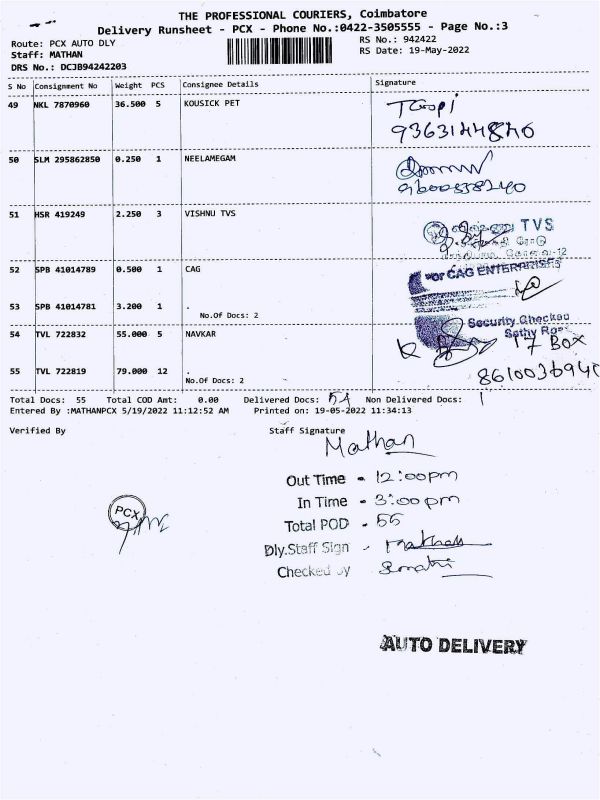 THE PROFESSIONAL COURIERS, Coimbatore
Delivery Runsheet - PCX - Phone No.:0422-3505555 - Page No.:3
Route: PCX AUTO DLY
RS No.: 942422
Staff: MATHAN
RS Date: 19-May-2022
DRS No.: DCJB94242203
S No Consignment No Weight PCS Consignee Details Signature
49 NKL 7870960 36.500 5 KOUSICK PET
TGopi
9363144840
50 SLM 295862850 0.250 1 NEELAMEGAM
9600538240
51 HSR 419249 2.250 3 VISHNU TVS
TVS
52 SPB 41014789 0.500 1 CAG
For CAG ENTERPRISES
53 SPB 41014781 3.200 1 .
No.Of Docs: 2
Security Checked
Sathy Road
54 TVL 722832 55.000 5 NAVKAR
17 BOX
55 TVL 722819 79.000 12 .
8610036940
No.Of Docs: 2
Total Docs: 55 Total COD Amt: 0.00 Delivered Docs: 54 Non Delivered Docs: 1
Entered By :MATHANPCX 5/19/2022 11:12:52 AM Printed on: 19-05-2022 11:34:13
Verified By Staff Signature
Mathan
Out Time - 12:00pm
In Time - 3:00pm
PCX
Total POD - 55
Dly.Staff Sign - Mathan
Checked by
AUTO DELIVERY